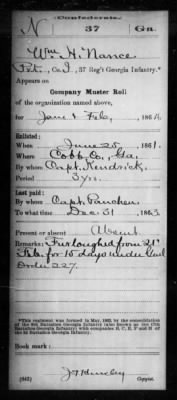 Confederate.
N 37 Ga.
Wm H. Nance
Pvt., Co. I, 37 Reg't Georgia Infantry.*
Appears on
Company Muster Roll
of the organization named above,
for Jan & Feb, 1864.
Enlisted:
When June 25, 1861.
Where Cobb Co., Ga.
By whom Capt. Kendrick.
Period 3 yrs.
Last paid:
By whom Capt.
To what time Dec 31, 1863.
Present or absent Absent.
Remarks: Furloughed from 21st
Feb for 15 days under Genl
Order 227.
*This regiment was formed in May, 1863, by the consolidation
of the 9th Battalion Georgia Infantry (also known as the 17th
Battalion Georgia Infantry) with companies
2d Battalion Georgia Infantry.
Book mark:
(642)
Copyist.